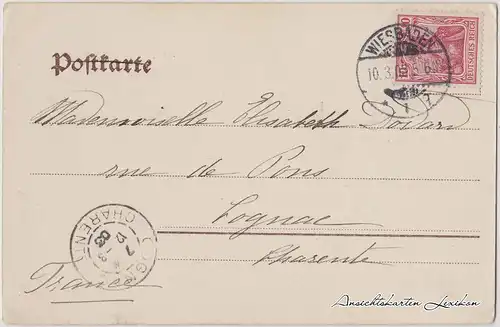 Postkarte
WIESBADEN
10.3.
DEUTSCHES REICH
10
Mademoiselle Elisabeth
rue de Pons
Cognac
Charente
France
CHARENTE
03
Ansichtskarten Lexikon